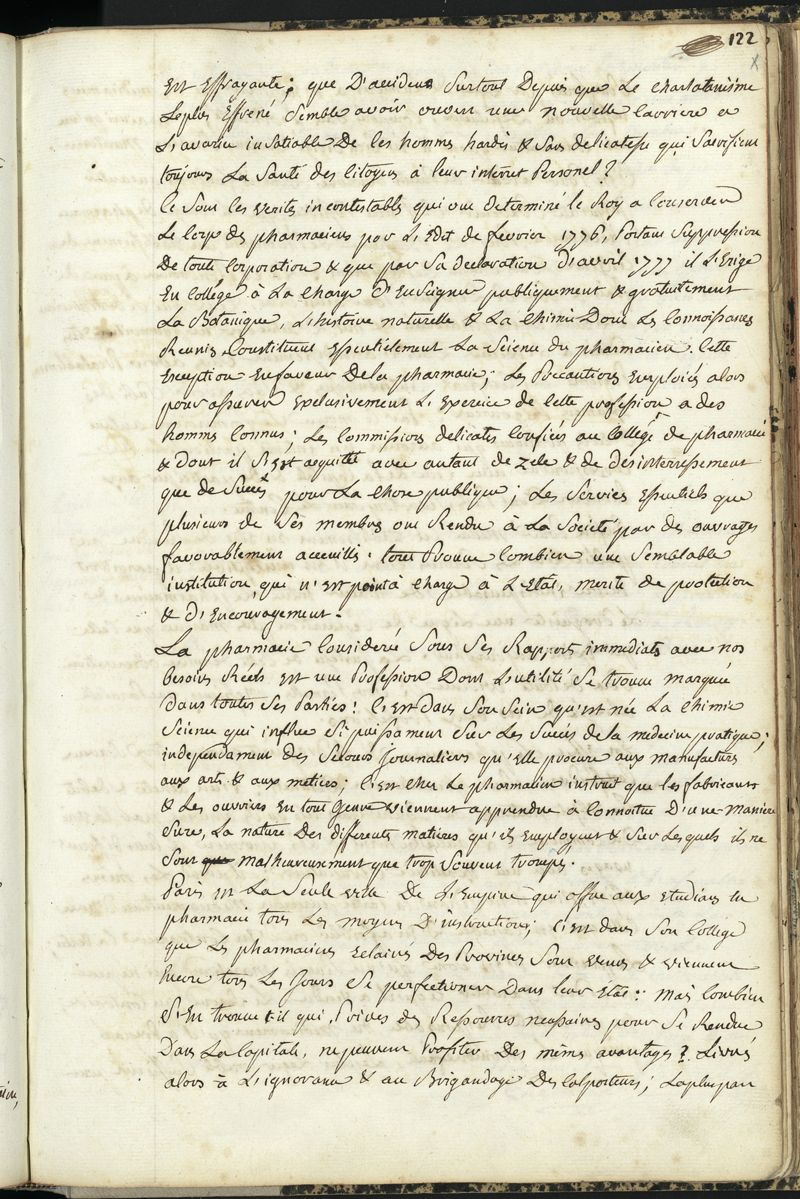 122
est Effrayante; que D'accidens Surtout Depuis que Le Charlatanisme
Leplus Effrené Semble avoir ouvert une nouvelle Carriere a
L'avarice insatiable De ces hommes hardis & Sans delicatesse qui Sacrifient
toujours La Santé des Citoyens à leur interret Personel?
Ce Sont ces verités incontestables qui ont determiné le Roy a Conserver
Le Corps des pharmaciens par L'Edit de fevrier 1776, Portant Suppression
De toute Corporation & que par Sa declaration D'avril 1777 il L'Erige
En College à La Charge d'Enseigner publiquement & gratuitement
La Botanique, L'histoire naturelle & La Chimie Dont Les Connoissances
Reunies Constituent essentiélement La Science du pharmacien. Cette
Exception En faveur De la pharmacie; Les Precautions Employées alors
pour assurer exclusivement L'exercice de Cette profession a des
hommes Connus; Les Commissions delicates Confiées au College de pharmacie
& dont il S'est acquitté avec autant de zele & de desinterressement
que de Succès pour La Chose publique; Les Services Essentiels que
plusieurs de Ses membres ont Rendu à La Societé par des ouvrages
favorablement acceuillis. tout Prouve Combien une Semblable
institution, qui n'est point à Charge à L'Etat, merite de protection
& d'Encouragement.
La pharmacie Considerée Sous Ses Rapports immediats avec nos
besoins Réels est une Profession Dont L'utilité Se trouve marquée
Dans toutes Ses Parties! C'est Dans Son Sein qu'est née La Chimie
Science qui influe Si puissament Sur Les Succès de la medecine pratique;
independament des Secours Journaliers qu'elle procure aux manufactures
aux arts & aux metiers; C'est Chez Le pharmacien instruit que les fabricants
& Les ouvriers En tout Genre viennent apprendre à Connoitre D'une Maniere
Sure, La nature Des differentes matieres qu'ils Employent & Sur Lesquels ils ne
Sont malheureusement que trop Souvent trompés.
Paris est La Seule ville De L'Empire qui offre aux etudians En
pharmacie tous Les moyens D'instructions; C'est dans Son College
que Les pharmaciens Eclairés Des Provinces Sont venus & viennent
Encore tous Les Jours Se perfectionner Dans leur Etat: mais Combien
S'En trouve t'il qui, Privés des Ressources necessaires pour Se Rendre
Dans La Capitale, ne peuvent Profiter Des mêmes avantages? Livrés
alors à L'ignorance & au Brigandage Des Colporteurs; La plus part